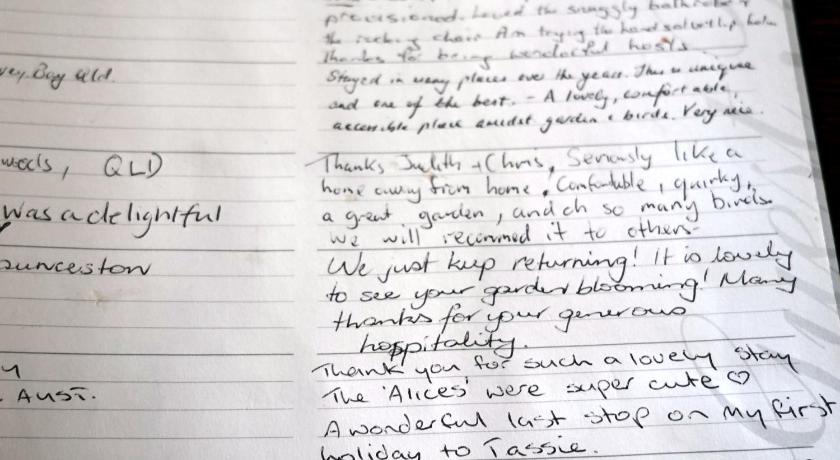 provisioned. Loved the snuggly bathrobe &
the rocking chair Am trying the
thanks for being wonderful hosts.
vey Bay Qld.
Stayed in many places over the years. This is unique
and one of the best. - A lovely, comfortable,
accessible place amidst garden & birds. Very nice.
woods, QLD
Thanks Judith + Chris, Seriously like a
home away from home. Comfortable, quirky,
Was a delightful
a great garden, and oh so many birds.
we will recommed it to others.
aunceston
We just keep returning! It is lovely
to see your garden blooming! Many
thanks for your generous
hospitality.
y
Thank you for such a lovely stay
. AUST.
The 'Alices' were super cute ♡
A wonderful last stop on my first
holiday to Tassie.